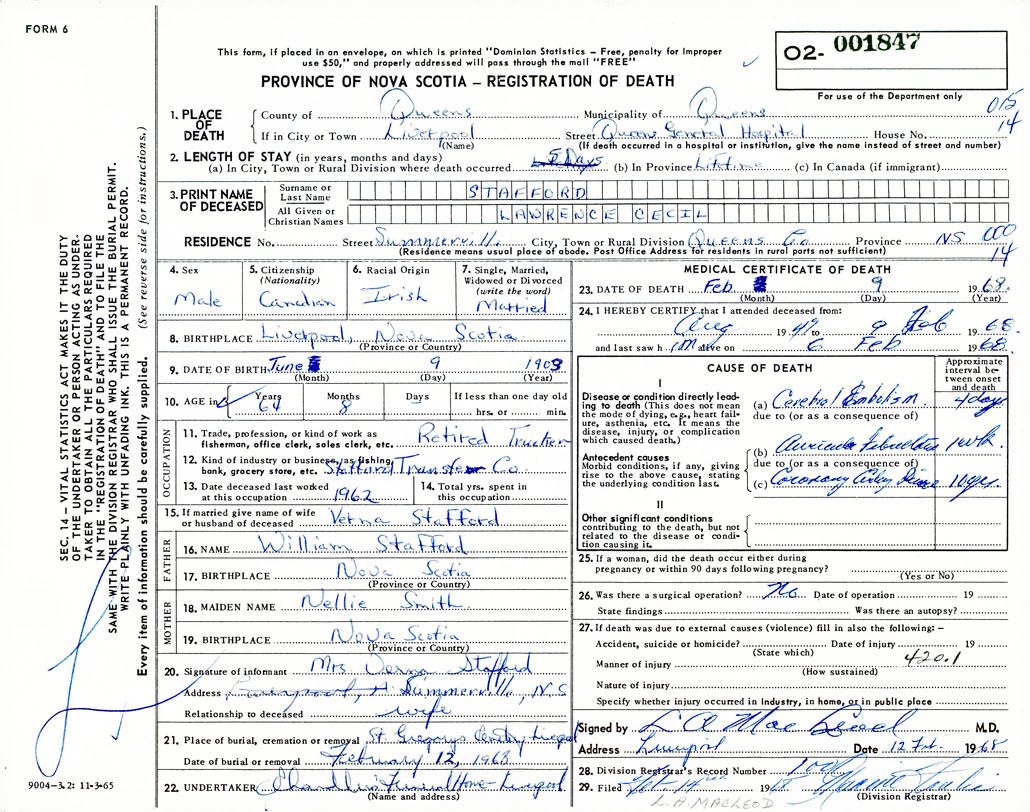 FORM 6
This form, if placed in an envelope, on which is printed "Dominion Statistics – Free, penalty for improper
use $50," and properly addressed will pass through the mail "FREE"
PROVINCE OF NOVA SCOTIA – REGISTRATION OF DEATH
O2- 001847
For use of the Department only
015
14
1. PLACE OF DEATH
County of Queens Municipality of Queens
If in City or Town Liverpool Street Queens General Hospital House No.
(Name) (If death occurred in a hospital or institution, give the name instead of street and number)
2. LENGTH OF STAY (in years, months and days)
(a) In City, Town or Rural Division where death occurred 5 Days (b) In Province Lifetime (c) In Canada (if immigrant)
3. PRINT NAME OF DECEASED
Surname or Last Name STAFFORD
All Given or Christian Names LAWRENCE CECIL
RESIDENCE No. Street Summerville City, Town or Rural Division Queens Co Province NS 000
14
(Residence means usual place of abode. Post Office Address for residents in rural parts not sufficient)
4. Sex
Male
5. Citizenship
(Nationality)
Canadian
6. Racial Origin
Irish
7. Single, Married,
Widowed or Divorced
(write the word)
Married
8. BIRTHPLACE Liverpool, Nova Scotia
(Province or Country)
9. DATE OF BIRTH June 9 1903
(Month) (Day) (Year)
10. AGE in
Years 64
Months 8
Days
If less than one day old
hrs. or min.
OCCUPATION
11. Trade, profession, or kind of work as
fisherman, office clerk, sales clerk, etc. Retired Trucker
12. Kind of industry or business, as fishing,
bank, grocery store, etc. Stafford Transfer Co
13. Date deceased last worked
at this occupation 1962
14. Total yrs. spent in
this occupation
15. If married give name of wife
or husband of deceased Verna Stafford
FATHER
16. NAME William Stafford
17. BIRTHPLACE Nova Scotia
(Province or Country)
MOTHER
18. MAIDEN NAME Nellie Smith
19. BIRTHPLACE Nova Scotia
(Province or Country)
20. Signature of informant Mrs. Verna Stafford
Address Summerville, N.S
Relationship to deceased wife
21. Place of burial, cremation or removal St. Gregorys
Date of burial or removal February 12, 1968
22. UNDERTAKER Funeral Home Liverpool
(Name and address)
MEDICAL CERTIFICATE OF DEATH
23. DATE OF DEATH Feb 9 1968.
(Month) (Day) (Year)
24. I HEREBY CERTIFY that I attended deceased from:
Aug 1949 to 9 Feb 1968
and last saw him alive on 6 Feb 1968
CAUSE OF DEATH
Approximate
interval be-
tween onset
and death
I
Disease or condition directly lead-
ing to death (This does not mean
the mode of dying, e.g., heart fail-
ure, asthenia, etc. It means the
disease, injury, or complication
which caused death.)
(a) Cerebral Embolism 4 days
due to (or as a consequence of)
Antecedent causes
Morbid conditions, if any, giving
rise to the above cause, stating
the underlying condition last.
(b) Auricular Fibrillation 1 wk
due to (or as a consequence of)
(c) Coronary 10 yrs
II
Other significant conditions
contributing to the death, but not
related to the disease or condi-
tion causing it.
25. If a woman, did the death occur either during
pregnancy or within 90 days following pregnancy?
(Yes or No)
26. Was there a surgical operation? No Date of operation 19
State findings Was there an autopsy?
27. If death was due to external causes (violence) fill in also the following: –
Accident, suicide or homicide? Date of injury 19
(State which)
420.1
Manner of injury
(How sustained)
Nature of injury
Specify whether injury occurred in Industry, in home, or in public place
Signed by L A MacLeod M.D.
Address Liverpool Date 12 Feb. 1968
28. Division Registrar's Record Number
29. Filed 1968
(Division Registrar)
L.A. MACLEOD
SEC. 14 – VITAL STATISTICS ACT MAKES IT THE DUTY
OF THE UNDERTAKER OR PERSON ACTING AS UNDER-
TAKER TO OBTAIN ALL THE PARTICULARS REQUIRED
IN THE "REGISTRATION OF DEATH" AND TO FILE THE
SAME WITH THE DIVISION REGISTRAR WHO SHALL ISSUE THE BURIAL PERMIT.
WRITE PLAINLY WITH UNFADING INK. THIS IS A PERMANENT RECORD.
Every item of information should be carefully supplied. (See reverse side for instructions.)
9004-3.2: 11-3-65